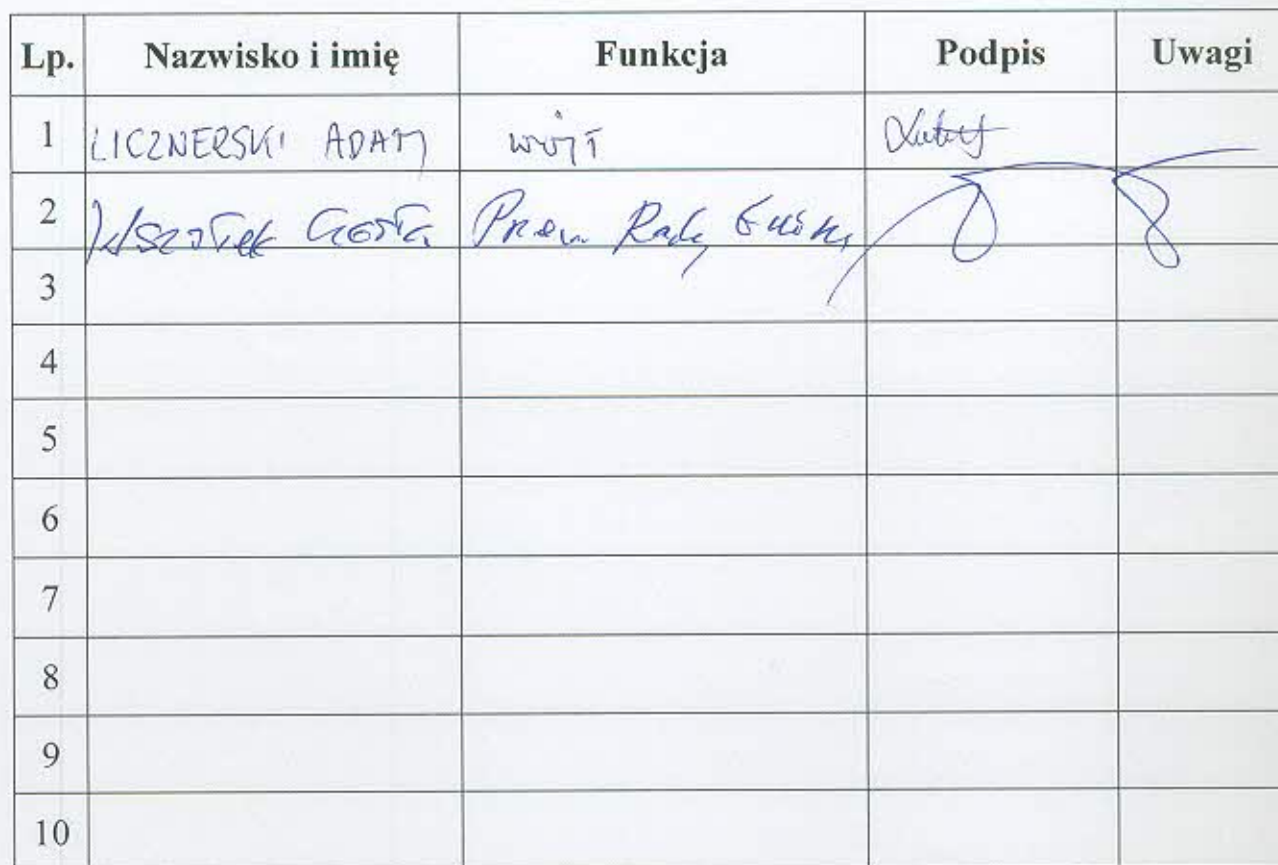 Lp. Nazwisko i imię Funkcja Podpis Uwagi
1 LICZNERSKI ADAM wójt
2 Wszołek Przew. Rady Gminy
3
4
5
6
7
8
9
10